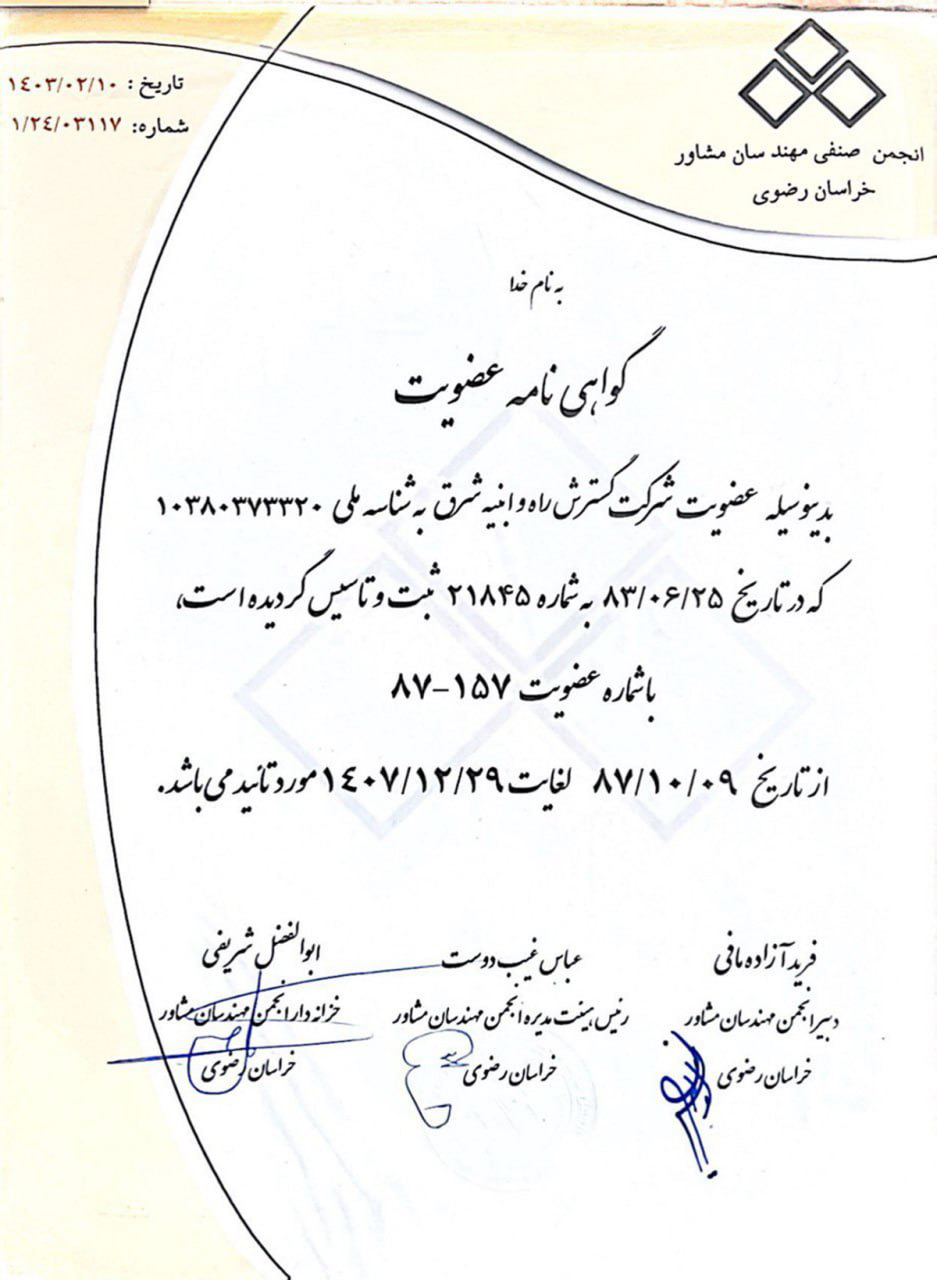 انجمن صنفی مهندسان مشاور
خراسان رضوی
تاریخ : ۱٤۰۳/۰۲/۱۰
شماره: ۱/۲٤/۰۳۱۱۷
به نام خدا
گواهی نامه عضویت
بدینوسیله عضویت شرکت گسترش راه و ابنیه شرق به شناسه ملی ۱۰۳۸۰۳۷۳۳۲۰
که در تاریخ ۸۳/۰۶/۲۵ به شماره ۲۱۸۴۵ ثبت و تاسیس گردیده است،
با شماره عضویت ۱۵۷-۸۷
از تاریخ ۸۷/۱۰/۰۹ لغایت ۱٤۰۷/۱۲/۲۹ مورد تائید می باشد.
فرید آزاده مافی
دبیر انجمن مهندسان مشاور
خراسان رضوی
عباس غیب دوست
رئیس هیئت مدیره انجمن مهندسان مشاور
خراسان رضوی
ابوالفضل شریفی
خزانه دار انجمن مهندسان مشاور
خراسان رضوی